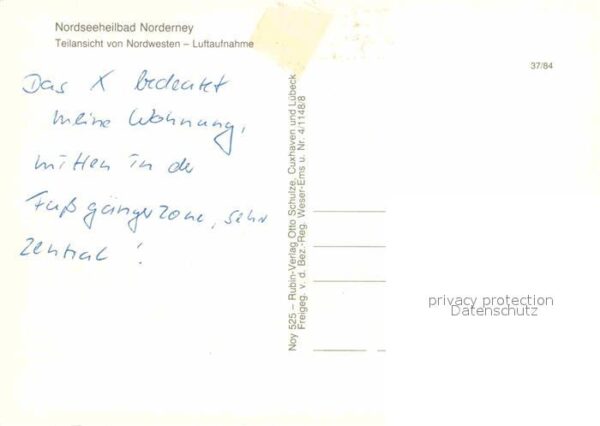 Nordseeheilbad Norderney
Teilansicht von Nordwesten – Luftaufnahme
37/84
Das X bedeutet
meine Wohnung,
mitten in der
Fußgängerzone, sehr
zentral !
Noy 525 – Rubin-Verlag Otto Schulze, Cuxhaven und Lübeck
Freigeg. v. d. Bez.-Reg. Weser-Ems u. Nr. 4/1148/8
privacy protection
Datenschutz